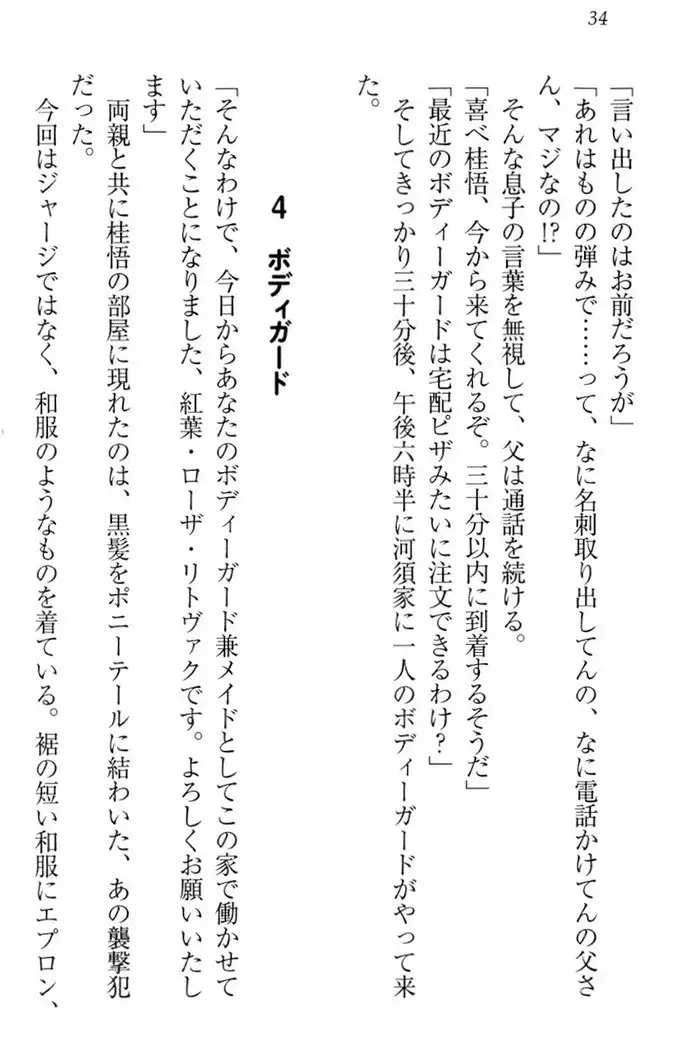 34
「言い出したのはお前だろうが」
「あれはものの弾みで……って、なに名刺取り出してんの、なに電話かけてんの父さ
ん、マジなの!?」
そんな息子の言葉を無視して、父は通話を続ける。
「喜べ桂悟、今から来てくれるぞ。三十分以内に到着するそうだ」
「最近のボディーガードは宅配ピザみたいに注文できるわけ?」
そしてきっかり三十分後、午後六時半に河須家に一人のボディーガードがやって来
た。
4 ボディガード
「そんなわけで、今日からあなたのボディーガード兼メイドとしてこの家で働かせて
いただくことになりました、紅葉・ローザ・リトヴァクです。よろしくお願いいたし
ます」
両親と共に桂悟の部屋に現れたのは、黒髪をポニーテールに結わいた、あの襲撃犯
だった。
今回はジャージではなく、和服のようなものを着ている。裾の短い和服にエプロン、